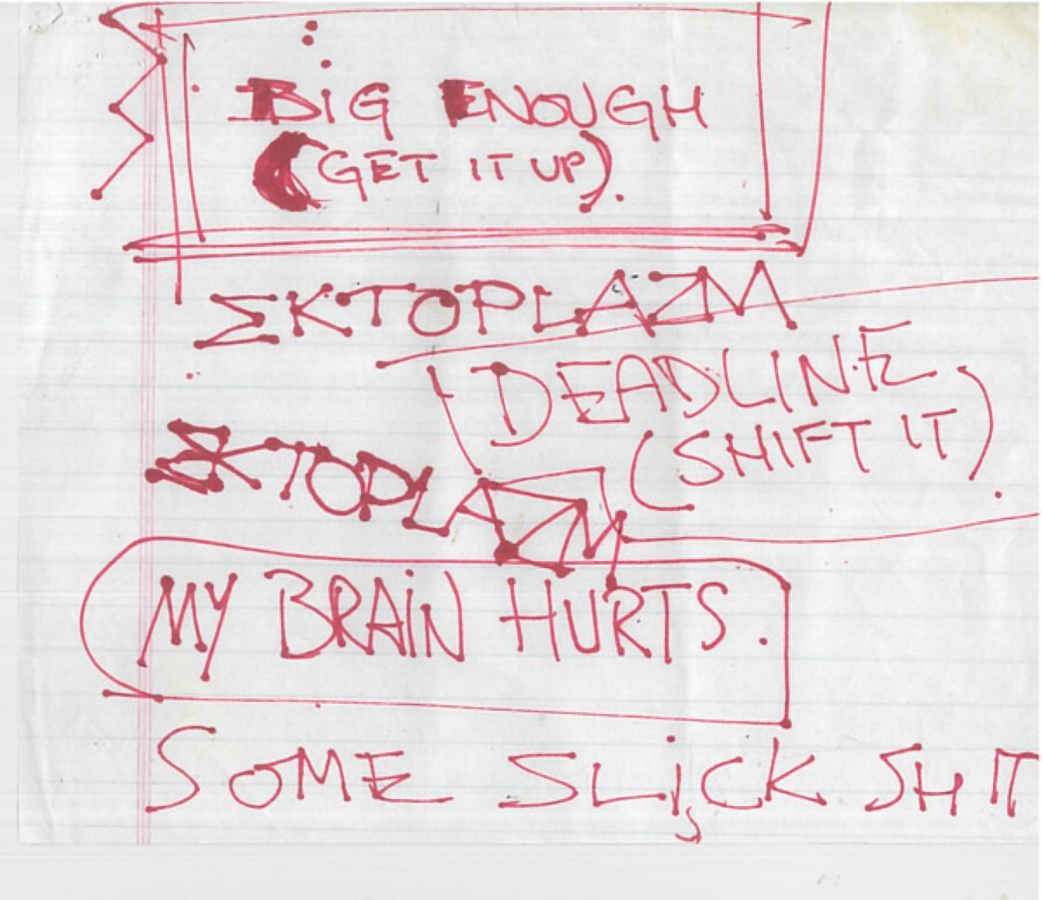 BiG ENOUGH
(GET IT UP).
EKTOPLAZM
DEADLINE
(SHIFT IT)
EKTOPLAZM
MY BRAiN HURTS.
SOME SLiCK SHIT